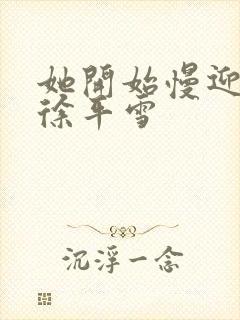 她開始慢迎
徐平雪
沉浮一念